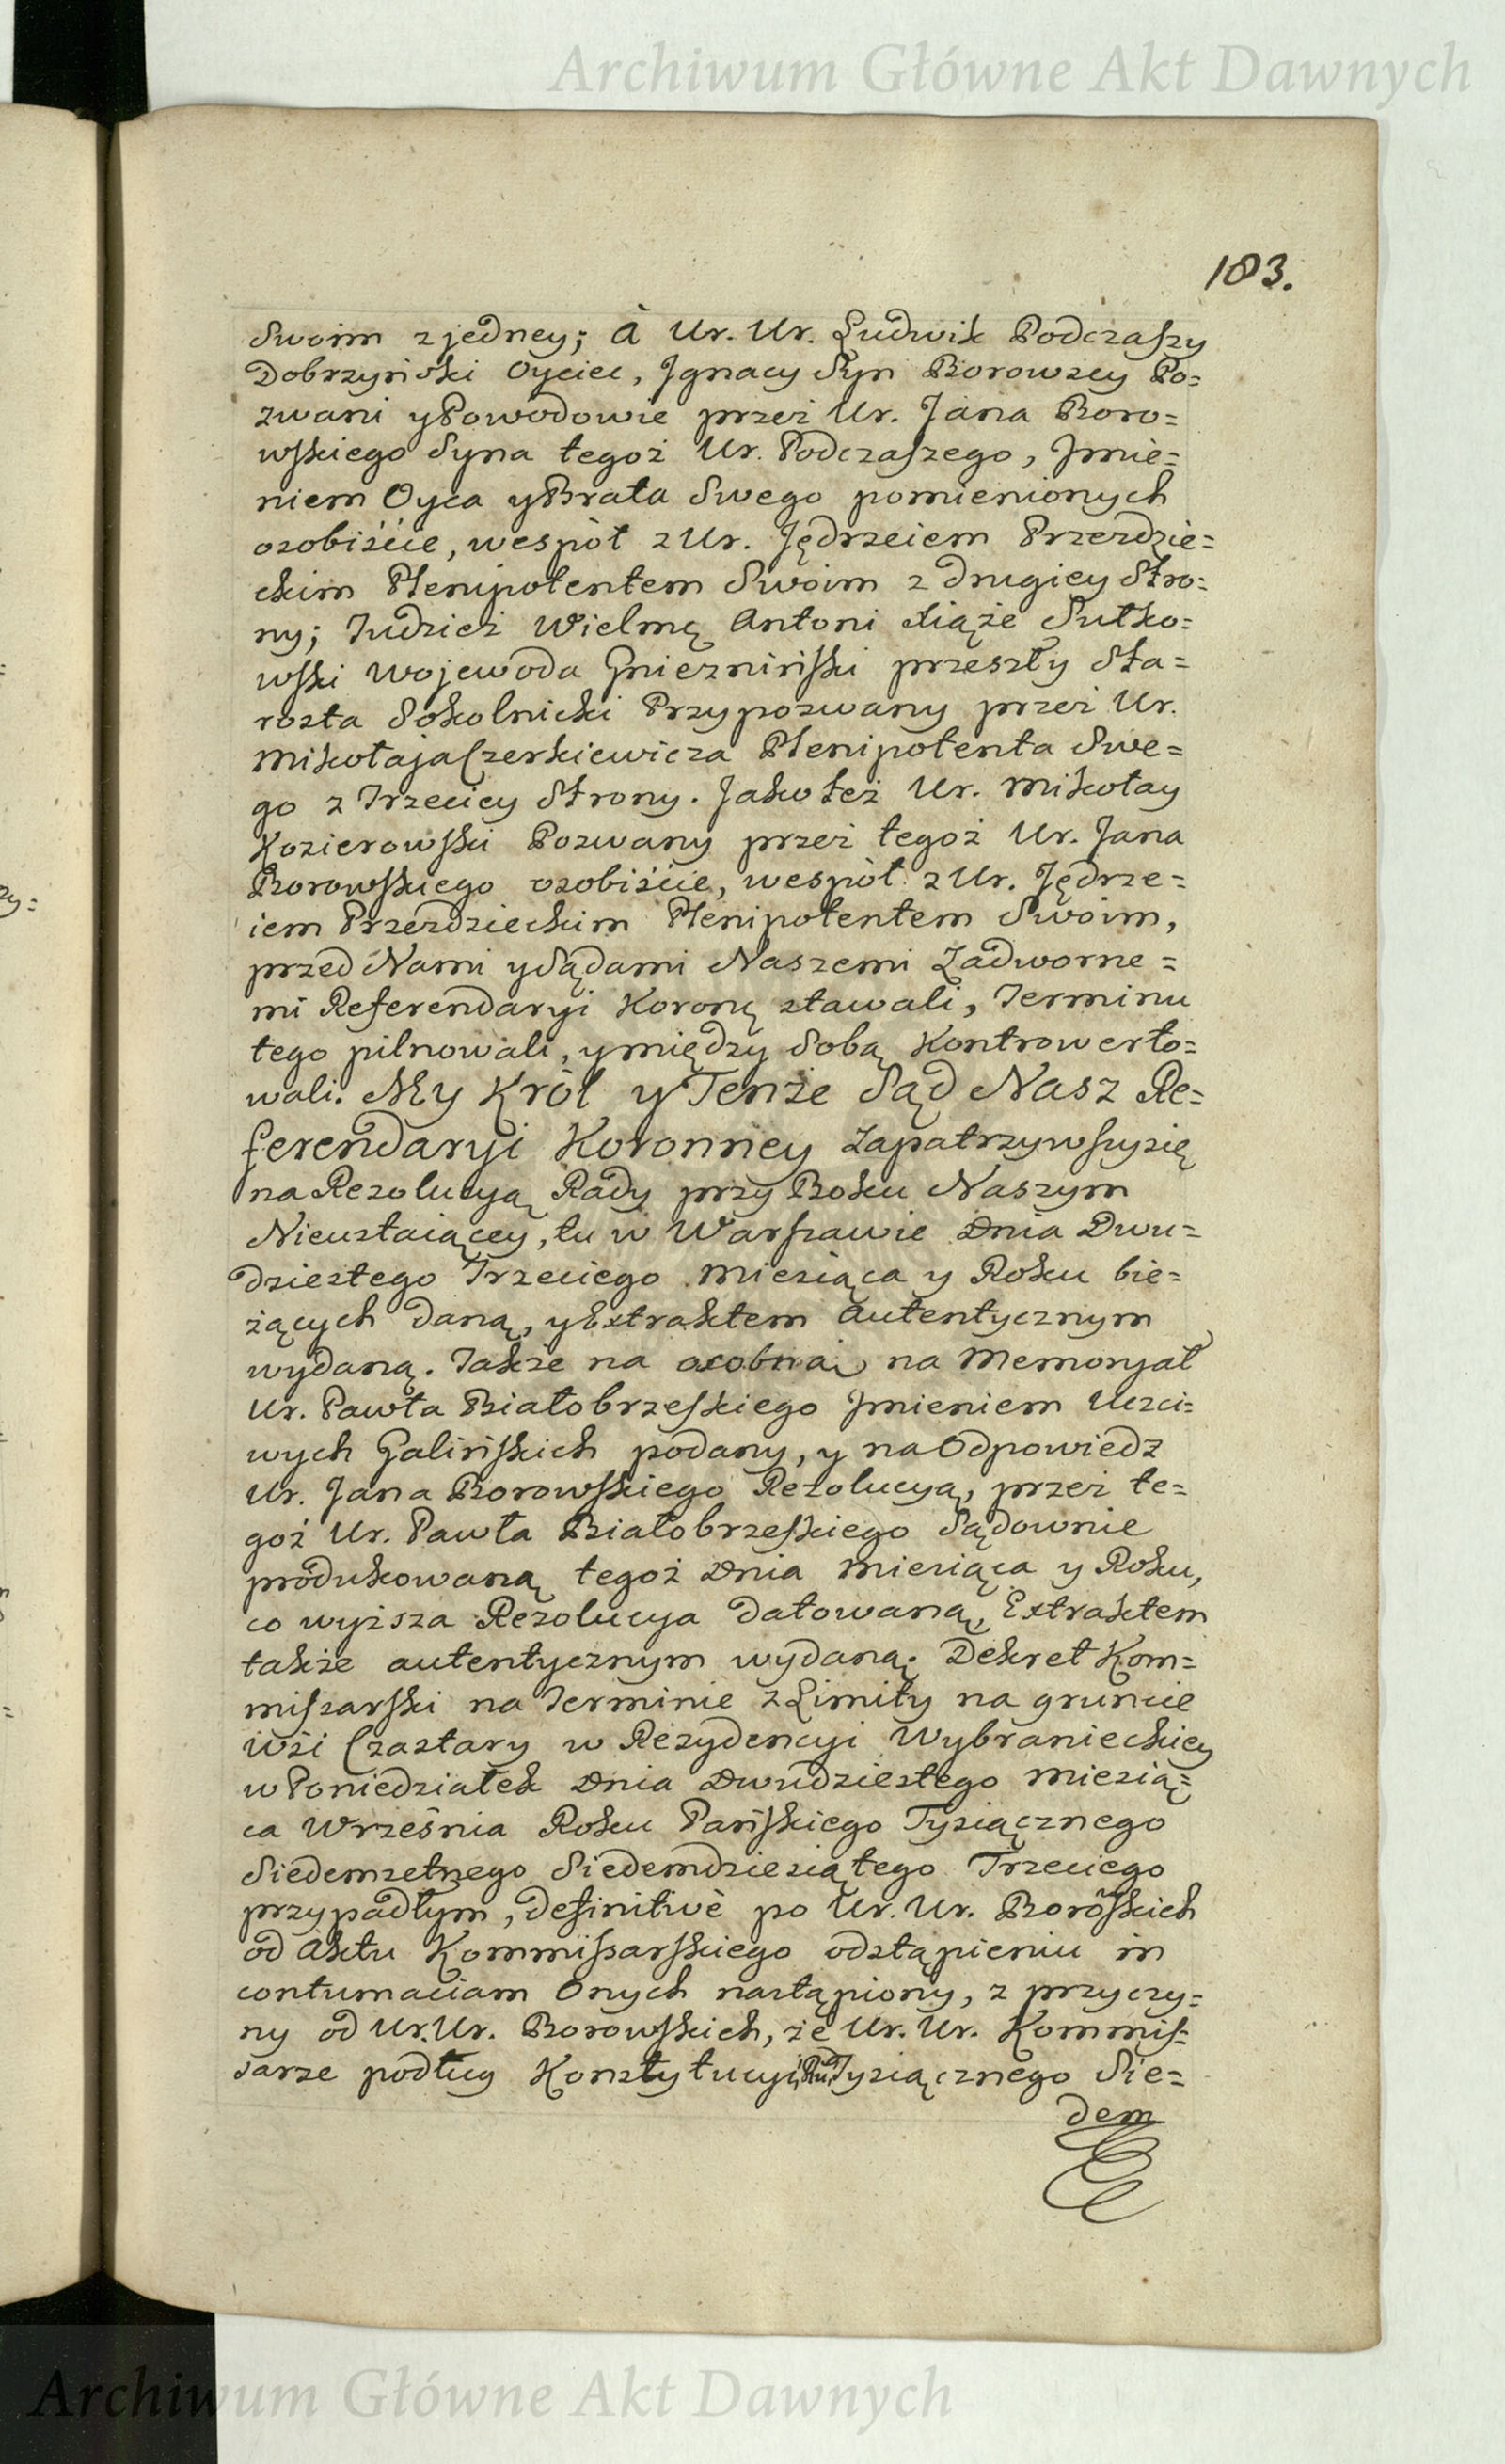 Archiwum Główne Akt Dawnych
183.
Swoim z jedney; à Ur. Ur. Ludwik Podczaszy
Dobrzyński Oyciec, Jgnacy Syn Borowscy Po=
zwani y Powodowie przez Ur. Jana Boro=
wskiego Syna tegoż Ur. Podczaszego, Jmie=
niem Oyca y Brata Swego pomienionych
osobiście, wespół z Ur. Jędrzeiem Przezdzie=
ckim Plenipotentem Swoim z drugiey Stro=
ny; Tudzież Wielmą Antoni Xiąże Sułko=
wski Wojewoda Gniezniński przeszły Sta=
rosta Sokolnicki Przypozwany przez Ur.
Mikołaja Czerkiewicza Plenipotenta Swe=
go z Trzeciey Strony. Jako też Ur. Mikołay
Kozierowski Pozwany przez tegoż Ur. Jana
Borowskiego osobiście, wespół z Ur. Jędrze=
iem Przezdzieckim Plenipotentem Swoim,
przed Nami y Sądami Naszemi Zadworne=
mi Referendaryi Koronę stawali, Terminu
tego pilnowali, y między Sobą Kontrowerto=
wali. My Król y Tenże Sąd Nasz Re=
ferendaryi Koronney zapatrzywszy się
na Rezolucyą Rady przy Boku Naszym
Nieustaiącey, tu w Warszawie Dnia Dwu=
dziestego Trzeciego Miesiąca y Roku bie=
żących daną, y Extraktem Autentycznym
wydaną. Także na osobną na Memoryał
Ur. Pawła Białobrzeskiego Jmieniem Uczci=
wych Galińskich podany, y na Odpowiedz
Ur. Jana Borowskiego Rezolucyą, przez te=
goż Ur. Pawła Białobrzeskiego Sądownie
produkowaną tegoż Dnia Miesiąca y Roku,
co wyższa Rezolucya datowaną, Extraktem
także autentycznym wydaną; Dekret Kom=
missarski na Terminie z Limity na gruncie
wsi Czastary w Rezydencyi Wybranieckiey
w Poniedziałek Dnia Dwudziestego Miesią=
ca Września Roku Pańskiego Tysiącznego
Siedemsetnego Siedemdziesiątego Trzeciego
przypadłym, definitivè po Ur. Ur. Borowskich
od Aktu Kommissarskiego odstąpieniu in
contumaciam Onych nastąpiony, z przyczy=
ny od Ur. Ur. Borowskich, że Ur. Ur. Kommis=
sarze podług Konstytucyi Rku Tysiącznego Sie=
dem
Archiwum Główne Akt Dawnych